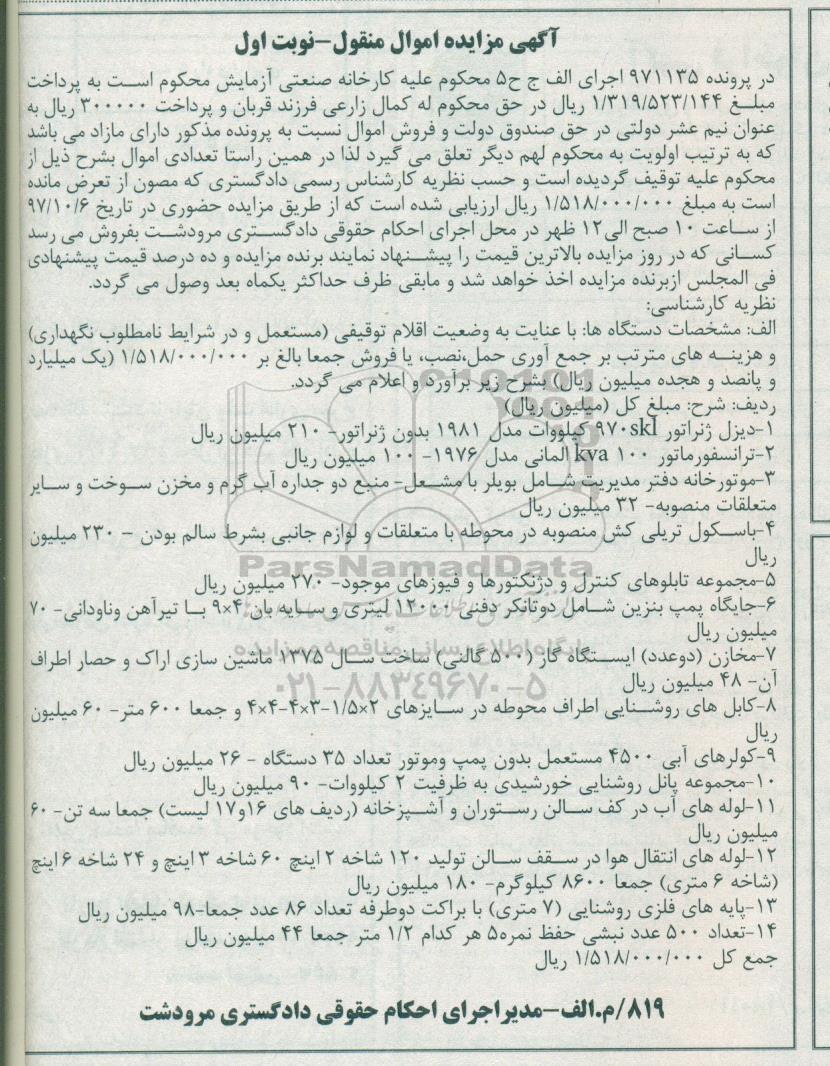 آگهی مزایده اموال منقول-نوبت اول
در پرونده ۹۷۱۱۳۵ اجرای الف ج ح۵ محکوم علیه کارخانه صنعتی آزمایش محکوم است به پرداخت
مبلغ ۱/۳۱۹/۵۲۳/۱۴۴ ریال در حق محکوم له کمال زارعی فرزند قربان و پرداخت ۳۰۰۰۰۰ ریال به
عنوان نیم عشر دولتی در حق صندوق دولت و فروش اموال نسبت به پرونده مذکور دارای مازاد می باشد
که به ترتیب اولویت به محکوم لهم دیگر تعلق می گیرد لذا در همین راستا تعدادی اموال بشرح ذیل از
محکوم علیه توقیف گردیده است و حسب نظریه کارشناس رسمی دادگستری که مصون از تعرض مانده
است به مبلغ ۱/۵۱۸/۰۰۰/۰۰۰ ریال ارزیابی شده است که از طریق مزایده حضوری در تاریخ ۹۷/۱۰/۶
از ساعت ۱۰ صبح الی۱۲ ظهر در محل اجرای احکام حقوقی دادگستری مرودشت بفروش می رسد
کسانی که در روز مزایده بالاترین قیمت را پیشنهاد نمایند برنده مزایده و ده درصد قیمت پیشنهادی
فی المجلس ازبرنده مزایده اخذ خواهد شد و مابقی ظرف حداکثر یکماه بعد وصول می گردد.
نظریه کارشناسی:
الف: مشخصات دستگاه ها: با عنایت به وضعیت اقلام توقیفی (مستعمل و در شرایط نامطلوب نگهداری)
و هزینه های مترتب بر جمع آوری حمل،نصب، یا فروش جمعا بالغ بر ۱/۵۱۸/۰۰۰/۰۰۰ (یک میلیارد
و پانصد و هجده میلیون ریال) بشرح زیر برآورد و اعلام می گردد.
ردیف: شرح: مبلغ کل (میلیون ریال)
۱-دیزل ژنراتور ۹۷۰skl کیلووات مدل ۱۹۸۱ بدون ژنراتور- ۲۱۰ میلیون ریال
۲-ترانسفورماتور ۱۰۰ kva المانی مدل ۱۹۷۶- ۱۰۰ میلیون ریال
۳-موتورخانه دفتر مدیریت شامل بویلر با مشعل- منبع دو جداره آب گرم و مخزن سوخت و سایر
متعلقات منصوبه- ۳۲ میلیون ریال
۴-باسکول تریلی کش منصوبه در محوطه با متعلقات و لوازم جانبی بشرط سالم بودن - ۲۳۰ میلیون
ریال
۵-مجموعه تابلوهای کنترل و دژنکتورها و فیوزهای موجود- ۲۷۰ میلیون ریال
۶-جایگاه پمپ بنزین شامل دوتانکر دفنی ۱۲۰۰۰ لیتری و سایه بان ۴×۹ با تیرآهن وناودانی- ۷۰
میلیون ریال
۷-مخازن (دوعدد) ایستگاه گاز (۵۰۰ گالنی) ساخت سال ۱۳۷۵ ماشین سازی اراک و حصار اطراف
آن- ۴۸ میلیون ریال
۸-کابل های روشنایی اطراف محوطه در سایزهای ۲×۱/۵-۳×۴-۴×۴ و جمعا ۶۰۰ متر- ۶۰ میلیون
ریال
۹-کولرهای آبی ۴۵۰۰ مستعمل بدون پمپ وموتور تعداد ۳۵ دستگاه - ۲۶ میلیون ریال
۱۰-مجموعه پانل روشنایی خورشیدی به ظرفیت ۲ کیلووات- ۹۰ میلیون ریال
۱۱-لوله های آب در کف سالن رستوران و آشپزخانه (ردیف های ۱۶و۱۷ لیست) جمعا سه تن- ۶۰
میلیون ریال
۱۲-لوله های انتقال هوا در سقف سالن تولید ۱۲۰ شاخه ۲ اینچ ۶۰ شاخه ۳ اینچ و ۲۴ شاخه ۶ اینچ
(شاخه ۶ متری) جمعا ۸۶۰۰ کیلوگرم- ۱۸۰ میلیون ریال
۱۳-پایه های فلزی روشنایی (۷ متری) با براکت دوطرفه تعداد ۸۶ عدد جمعا-۹۸ میلیون ریال
۱۴-تعداد ۵۰۰ عدد نبشی حفظ نمره۵ هر کدام ۱/۲ متر جمعا ۴۴ میلیون ریال
جمع کل ۱/۵۱۸/۰۰۰/۰۰۰ ریال
۸۱۹/م.الف-مدیراجرای احکام حقوقی دادگستری مرودشت
ParsNamadData
۰۲۱-۸۸۳۴۹۶۷۰-۵